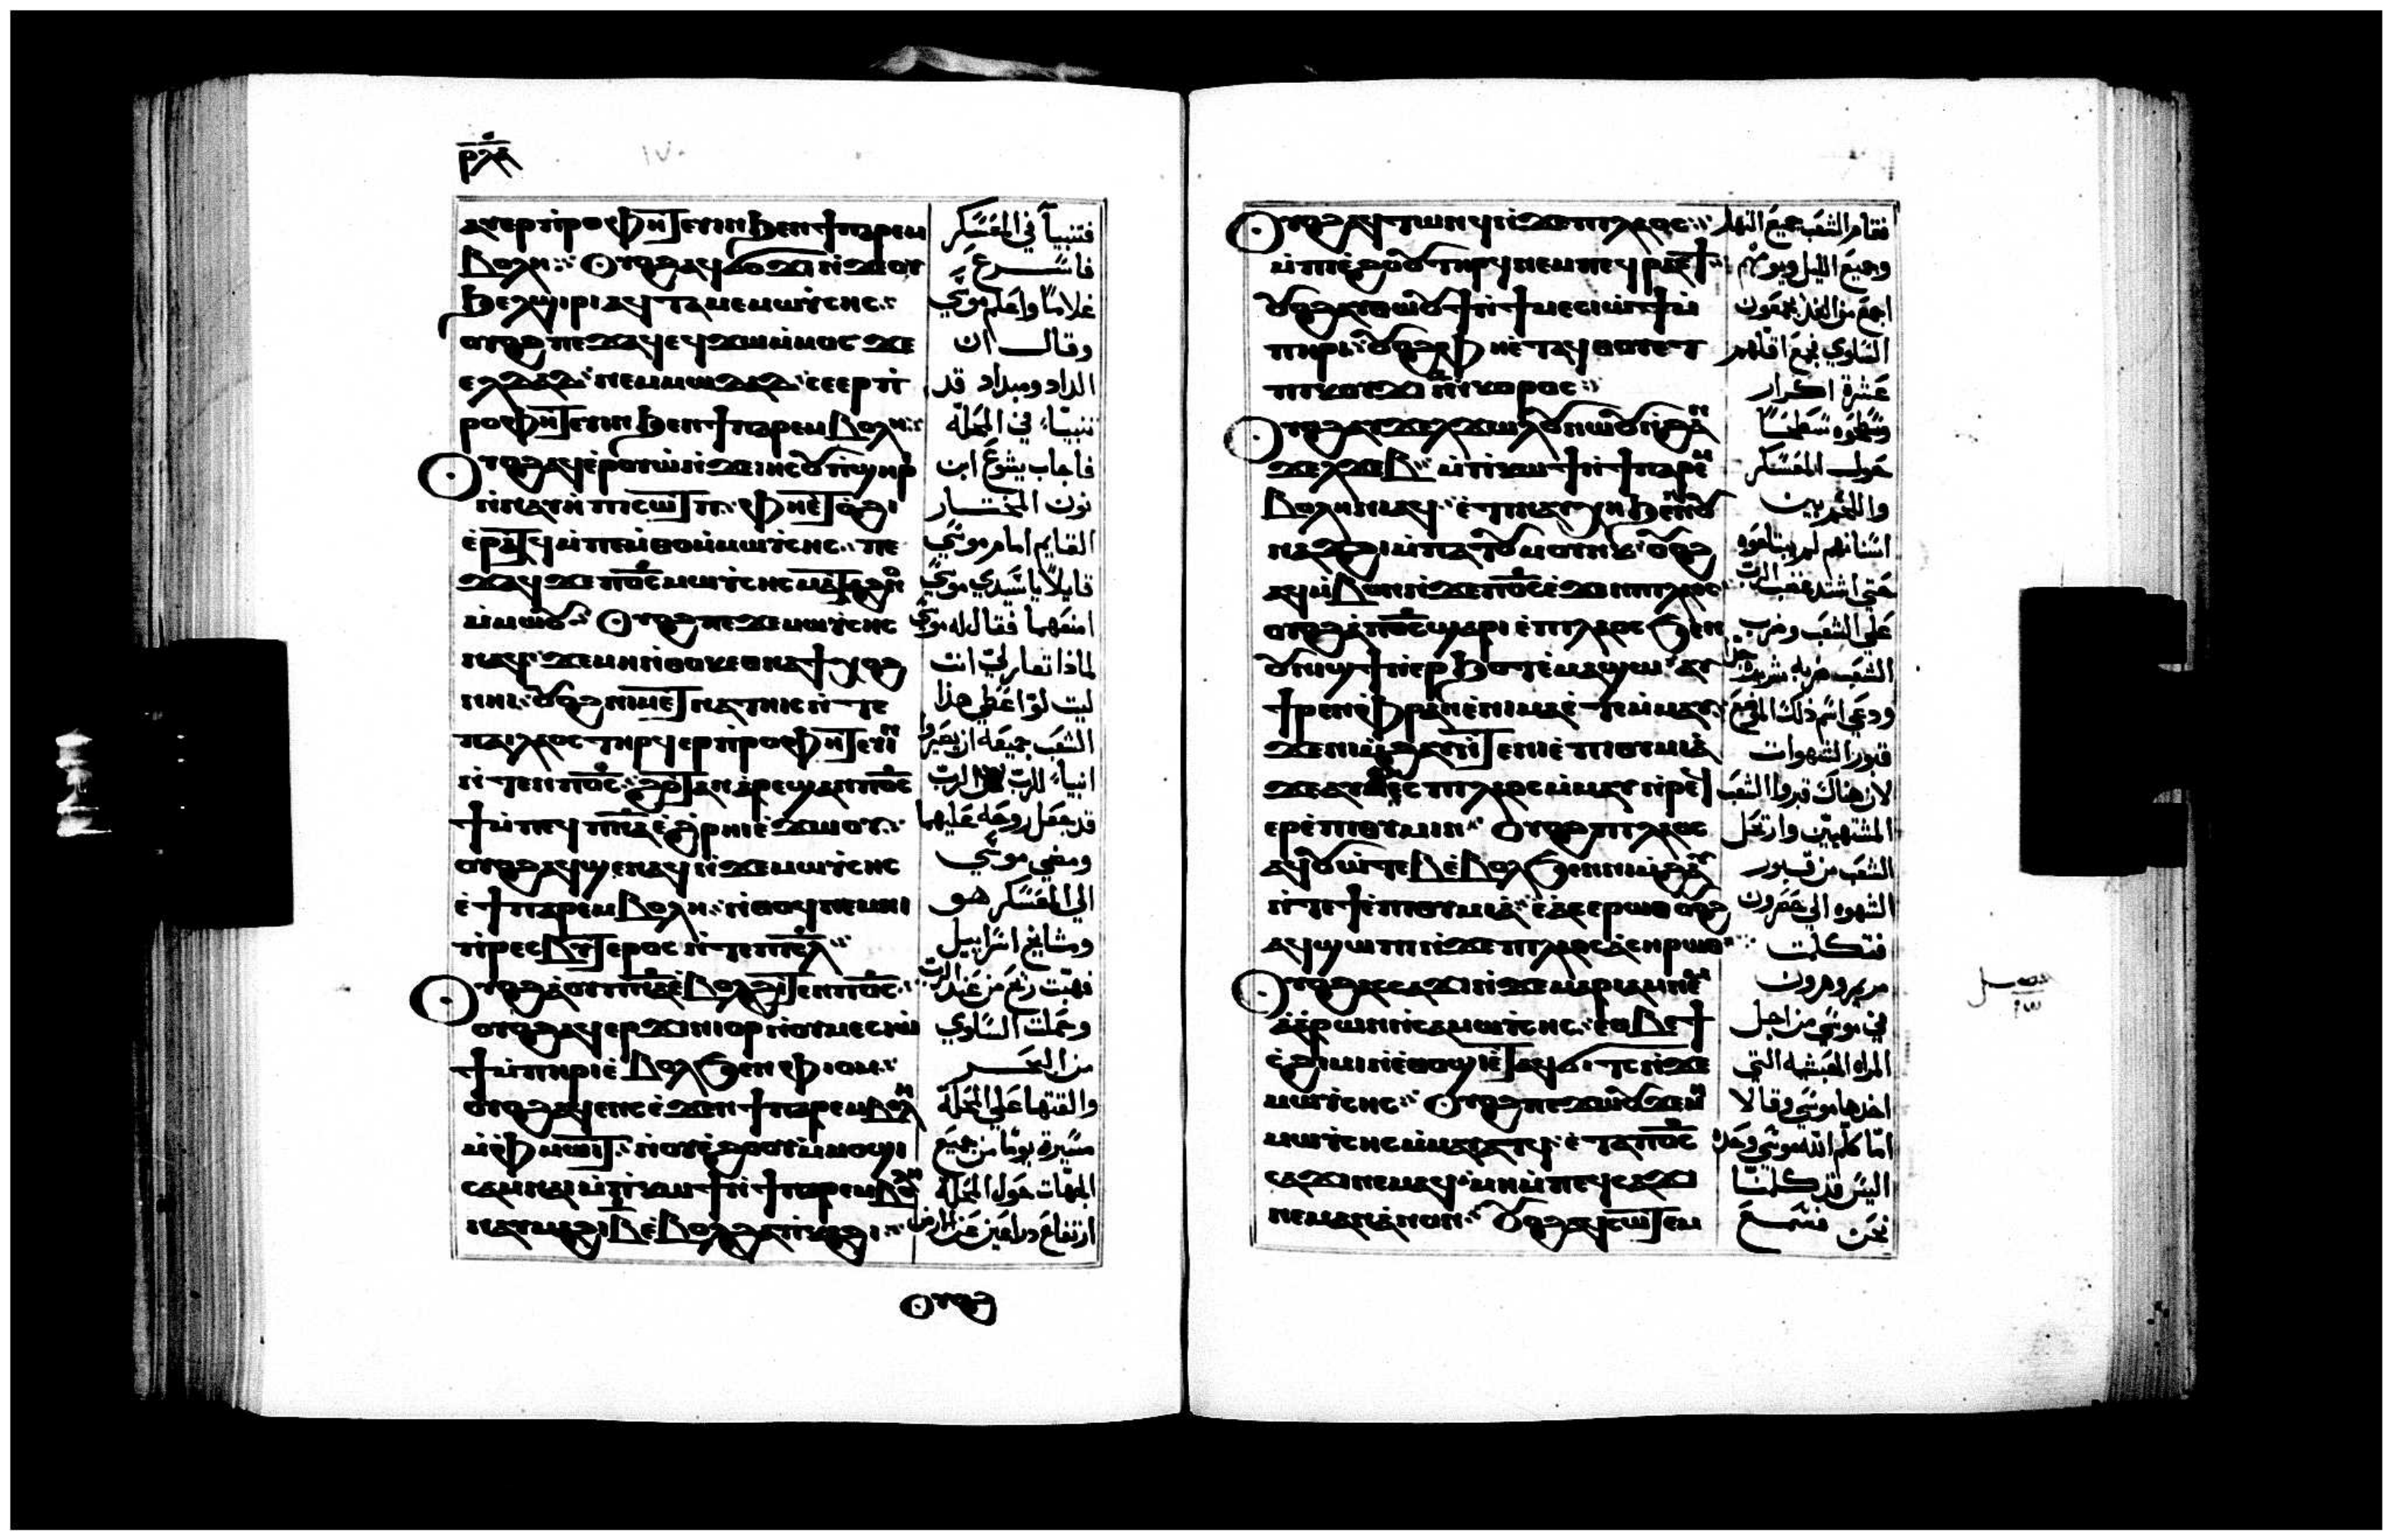 ⲁⲩⲉⲣⲡⲣⲟⲫⲏⲧⲉⲩⲓⲛ ϧⲉⲛ ϯⲡⲁⲣⲉⲙ
ⲃⲟⲗⲏ: ⲟⲩⲟϩ ⲁϥϭⲟϫⲓ ⲛ̀ϫⲉ ⲟⲩ
ϧⲉⲗϣⲓⲣⲓ ⲁϥⲧⲁⲙⲉ ⲙⲱⲩⲥⲏⲥ:
ⲟⲩⲟϩ ⲡⲉϫⲁϥ ⲉϥϫⲱ ⲙ̀ⲙⲟⲥ ϫⲉ
ⲉⲗⲇⲁⲇ: ⲛⲉⲙ ⲙⲱⲇⲁⲇ: ⲥⲉⲉⲣⲡ̀
ⲣⲟⲫⲏⲧⲉⲩⲓⲛ ϧⲉⲛ ϯⲡⲁⲣⲉⲙⲃⲟⲗⲏ:
ⲟⲩⲟϩ ⲁϥⲉ̀ⲣⲟⲩⲱ̀ ⲛ̀ϫⲉ ⲓⲏⲥⲟⲩ ⲡ̀ϣⲏⲣⲓ
ⲛ̀ⲛⲁⲩⲏ ⲡⲓⲥⲱⲧⲡ: ⲫⲏ ⲉⲧⲟ̀ϩⲓ
ⲉ̀ⲣⲁⲧϥ ⲙ̀ⲡⲉⲙ̀ⲑⲟ ⲙ̀ⲙⲱⲩⲥⲏⲥ: ⲡⲉ
ϫⲁϥ ϫⲉ ⲡⲟ̅ⲥ̅ ⲙⲱⲩⲥⲏⲥ ⲙⲁⲧⲁϩⲛⲟ
ⲙ̀ⲙⲱⲟⲩ: ⲟⲩⲟϩ ⲡⲉϫⲉ ⲙⲱⲩⲥⲏⲥ
ⲛⲁϥ: ϫⲉ ⲙⲏ ⲛ̀ⲑⲟⲕ ⲉⲑⲛⲁϯⲭⲟϩ
ⲛⲏⲓ: ⲟⲩⲟϩ ⲛⲓⲙ ⲉⲧⲛⲁⲧⲏⲓⲥ ⲛ̀ⲧⲉ
ⲡⲁⲓⲗⲁⲟⲥ ⲧⲏⲣϥ ⲉⲣⲡ̀ⲣⲟⲫⲏⲧⲉⲩⲓⲛ
ⲛ̀ⲧⲉⲛ ⲡⲟ̅ⲥ̅: ϩⲟⲧⲁⲛ ⲁⲣⲉϣⲁⲛ ⲡⲟ̅ⲥ̅
ϯ ⲙ̀ⲡⲉϥⲡ̅ⲛ̅ⲁ̅ ⲉ̀ϩ̀ⲣⲏⲓ ⲉ̀ϫⲱⲟⲩ:
ⲟⲩⲟϩ ⲁϥϣⲉⲛⲁϥ ⲛ̀ϫⲉ ⲙⲱⲩⲥⲏⲥ
ⲉ̀ϯⲡⲁⲣⲉⲙⲃⲟⲗⲏ: ⲛ̀ⲑⲟϥ ⲛⲉⲙ ⲛⲓ
ⲡ̀ⲣⲉⲥⲃⲩⲧⲉⲣⲟⲥ ⲛ̀ⲧⲉ ⲡⲓⲥ̅ⲗ̅:
ⲟⲩⲟϩ ⲁ̀ⲟⲩⲡ̅ⲛ̅ⲁ̅ ⲉ̀ⲃⲟⲗϩⲓⲧⲉⲛ ⲡⲟ̅ⲥ̅:
ⲟⲩⲟϩ ⲁϥⲉⲣϫⲓⲛⲓⲟⲣ ⲛ̀ⲟⲩⲙⲉⲥⲓⲱ̀
ϯ ⲙ̀ⲡⲏⲣⲓ ⲉ̀ⲃⲟⲗϧⲉⲛ ⲫⲓⲟⲙ:
ⲟⲩⲟϩ ⲁϥⲉⲛⲥ ⲉ̀ϫⲉⲛ ϯⲡⲁⲣⲉⲙⲃⲟⲗⲏ
ⲙ̀ⲫⲙⲱⲓⲧ: ⲛ̀ⲟⲩⲉ̀ϩⲟⲟⲩ ⲙ̀ⲙⲟϣⲓ
ⲥⲁⲙⲛⲁⲓ ⲙ̀ⲡ̀ⲕⲱϯ ⲛ̀ϯⲡⲁⲣⲉⲙⲃⲟⲗⲏ
ⲛⲁⲩⲙⲁϩⲓ ⲃ̅ ⲉ̀ⲃⲟⲗϩⲁ ⲡ̀ⲕⲁϩⲓ:
ⲟⲩⲟϩ
فتنبيا في المعسكر
فاسرع
غلاما واعلم موسي
وقال ان
الداد وميداد قد
تنبيا في المحلة
فاجاب يشوع ابن
نون المختار
القايم امام موسي
قايلا يا سيدي موسي
امنعهما فقال له موسي
لماذا تغار لي انت
ليت لو اعطي هذا
الشعب جميعه ان يصيروا
انبيا للرب اذا الرب
قد جعل روحه عليهما
ومضي موسي
الي المعسكر هو
ومشايخ اسراييل
فهبت ريح من عند الرب
وحملت السلوي
من البحر
والقتها علي المحلة
مسيرة يوما من جميع
الجهات حول المحلة
ارتفاع دراعين عن الارض
ⲟⲩⲟϩ ⲁϥⲧⲱⲛϥ ⲛ̀ϫⲉ ⲡⲓⲗⲁⲟⲥ:
ⲙ̀ⲡⲓⲉ̀ϩⲟⲟⲩ ⲧⲏⲣϥ ⲛⲉⲙ ⲡⲉϥⲣⲁⲥϯ:
ⲟⲩⲟϩ ⲁⲩⲑⲱⲟⲩϯ ⲛ̀ϯⲙⲉⲥⲓⲱ̀ϯ ⲙ̀
ⲡⲏⲣⲓ: ⲟⲩⲟϩ ⲫⲏ ⲉ̀ⲧⲁϥⲑⲟⲩⲉⲧ
ⲡⲓⲕⲟⲩϫⲓ ⲛ̀ⲓ̅ ⲛ̀ⲕⲟⲣⲟⲥ:
ⲟⲩⲟϩ ⲁⲩϫⲉⲗϫⲱⲗⲟⲩ ⲛⲱⲟⲩ ⲛ̀ϩⲁⲛ
ϫⲉⲗϫⲉⲃ: ⲙ̀ⲡ̀ⲕⲱϯ ⲛ̀ϯⲡⲁⲣⲉⲙ
ⲃⲟⲗⲏ ⲛⲓⲁϥ: ⲉ̀ⲧⲓ ⲛⲁⲩⲭⲏ ϧⲉⲛ ⲛⲟⲩ
ⲛⲁϫϩⲓ ⲙ̀ⲡⲁⲧⲟⲩⲙⲟⲩⲛⲕ: ⲟⲩⲟϩ
ⲁϥⲙ̀ⲃⲟⲛ ⲛ̀ϫⲉ ⲡⲟ̅ⲥ̅ ⲉ̀ϫⲉⲛ ⲡⲓⲗⲁⲟⲥ
ⲟⲩⲟϩ ⲁ̀ⲡⲟ̅ⲥ̅ ϣⲁⲣⲓ ⲉ̀ⲡⲓⲗⲁⲟⲥ ϧⲉⲛ
ⲟⲩⲛⲓϣϯ ⲛ̀ⲉⲣϧⲟⲧ ⲉ̀ⲙⲁϣⲱ: ⲁⲩ
ϯⲣⲉⲛ ⲉ̀ⲫ̀ⲣⲁⲛ ⲙ̀ⲡⲓⲙⲁ ⲉ̀ⲧⲉⲙ̀ⲙⲁⲩ:
ϫⲉ ⲛⲓⲙ̀ϩⲁⲩ ⲛ̀ⲧⲉ ⲛⲓⲉ̀ⲡⲓⲑⲩⲙⲓⲁ
ϫⲉ ⲁⲩⲑⲉⲙⲥ ⲡⲓⲗⲁⲟⲥ ⲙ̀ⲙⲁⲩ ⲛ̀ⲣⲉϥ
ⲉⲣⲉ̀ⲡⲓⲑⲩⲙⲓⲛ: ⲟⲩⲟϩ ⲡⲓⲗⲁⲟⲥ
ⲁϥⲟⲩⲱ̀ⲧⲉⲃ ⲉ̀ⲃⲟⲗϧⲉⲛ ⲛⲓⲙ̀ϩⲁⲩ
ⲛ̀ⲧⲉ ϯⲉ̀ⲡⲓⲑⲩⲙⲓⲁ: ⲉ̀ⲁⲥⲉⲣⲱⲑ ⲟⲩⲟϩ
ⲁϥϣⲱⲡⲓ ⲛ̀ϫⲉ ⲡⲓⲗⲁⲟⲥ ⲁ̀ⲥⲏⲣⲱⲑ:
ⲟⲩⲟϩ ⲁⲥⲥⲁϫⲓ ⲛ̀ϫⲉ ⲙⲁⲣⲓⲁⲙ ⲛⲉⲙ
ⲁⲉ̀ⲣⲱⲛ ⲛ̀ⲥⲁ ⲙⲱⲩⲥⲏⲥ: ⲉⲑⲃⲉ ϯ
ⲥ̀ϩⲓⲙⲓ ⲛ̀ⲉⲑⲟϣ ⲉ̀ⲧⲁϥϭⲓⲧⲥ ⲛ̀ϫⲉ
ⲙⲱⲩⲥⲏⲥ: ⲟⲩⲟϩ ⲡⲉϫⲱⲟⲩ ϫⲉ ⲙⲏ
ⲙⲱⲩⲥⲏⲥ ⲙ̀ⲙⲁⲩⲁⲧϥ: ⲉ̀ⲧⲁ ⲡⲟ̅ⲥ̅
ⲥⲁϫⲓ ⲛⲉⲙⲁϥ: ⲙⲏ ⲙ̀ⲡⲉϥⲥⲁϫⲓ
ⲛⲉⲙⲁⲛ ⲁ̀ⲛⲟⲛ: ⲟⲩⲟϩ ⲁϥⲥⲱⲧⲉⲙ
فقام الشعب جميع النهار
وجميع الليل ويوم
السلوي جمع اقلهم
عشرة اكرار
وسطحوه سطحا
حول المعسكر
واللحم بين
اسنانهم لم يبتلعوه
حتي اشتد غضب الرب
علي الشعب وضرب
الشعب ضربه شديدة جدا
ودعي اسم ذلك الموضع
قبور الشهوات
لان هناك قبروا الشعب
المشتهيين وارتحل
الشعب من قبور
الشهوه الي حضرون
فتكلمت
مريم وهرون
في موسي من اجل
المراه الحبشيه التي
اخدها موسي وقالا
اما كلم الله موسي وحده
اليس قد كلمنا
نحن فسمع
فصل